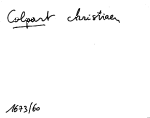 Colpaert Christiaen
1673/60